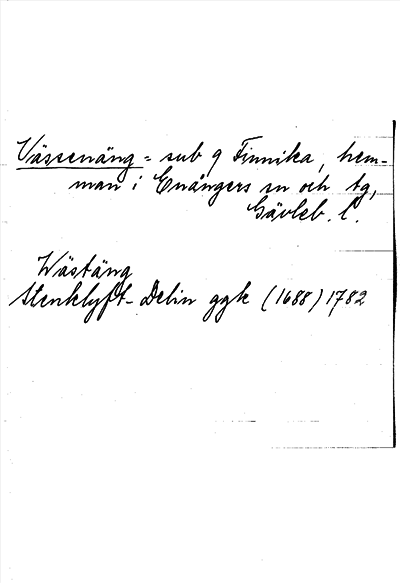 Vässenäng = sub 9 Finnika, hem-
man i Enångers sn och tg,
Gävleb. l.
Wästäng
Stenklyft-Delin ggk (1688) 1782